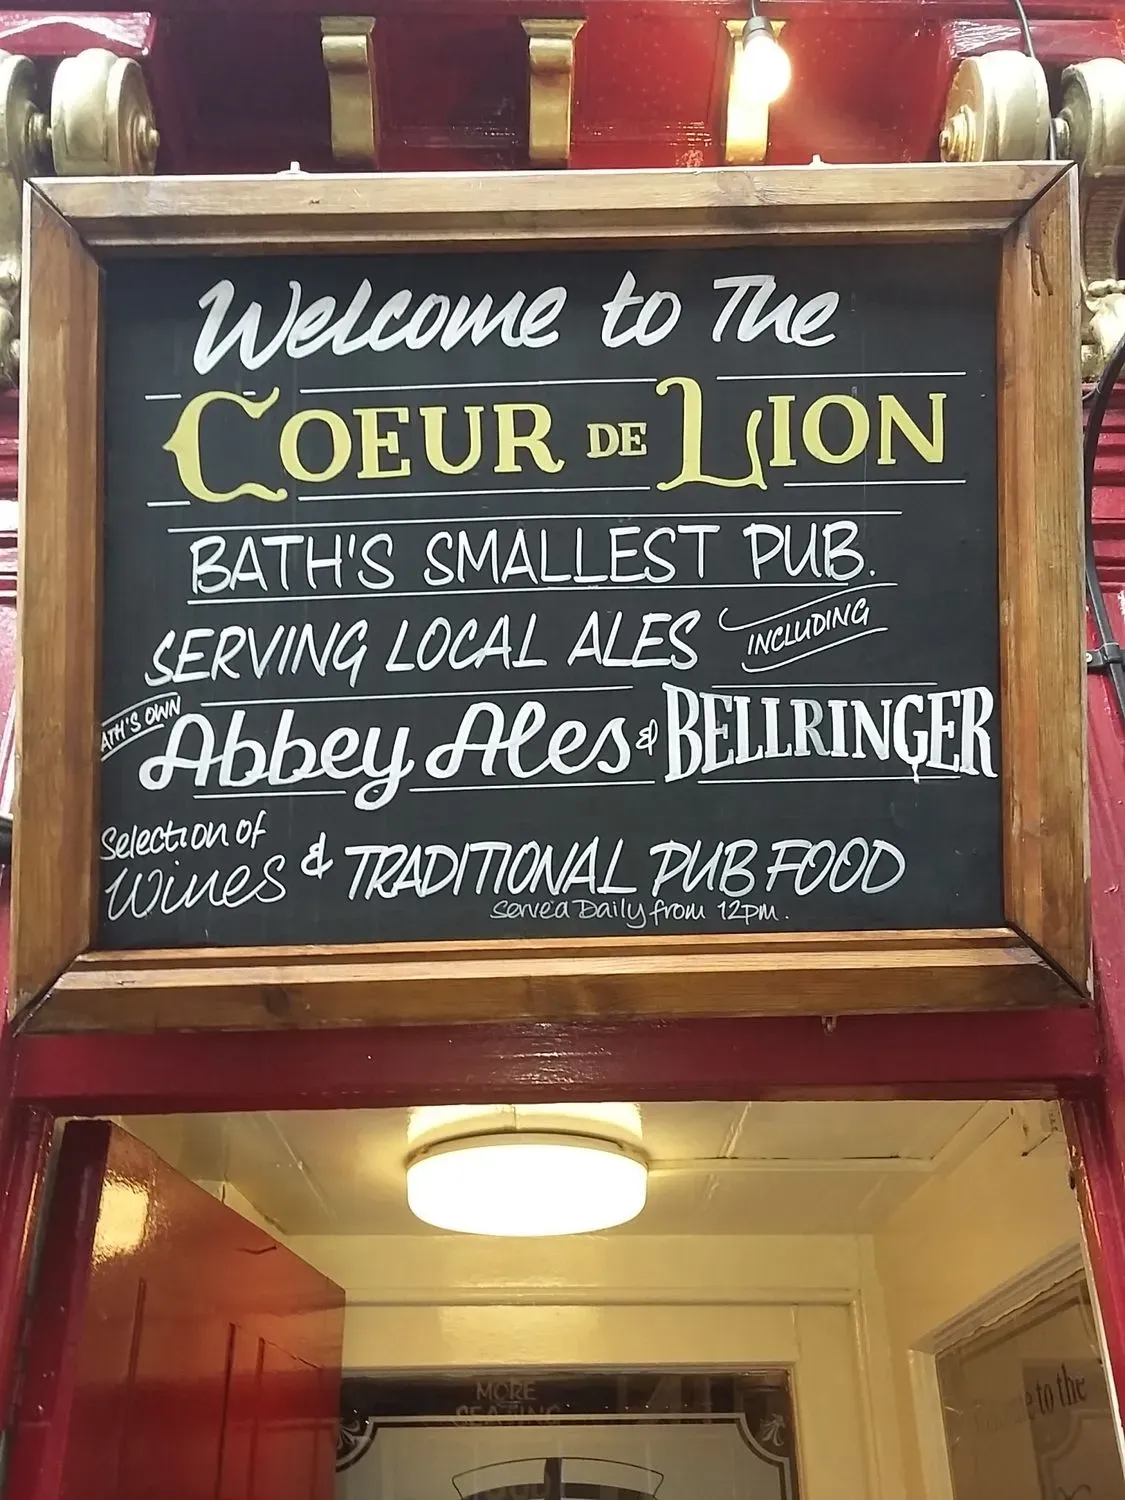 Welcome to The
COEUR DE LION
BATH'S SMALLEST PUB.
SERVING LOCAL ALES INCLUDING
BATH'S OWN Abbey Ales & BELLRINGER
Selection of
Wines & TRADITIONAL PUB FOOD
served Daily from 12pm.
MORE
SEATING
to the